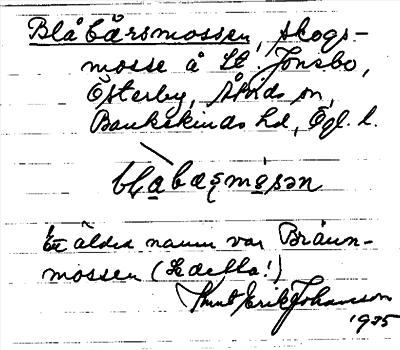 Blåbärsmossen, skogs-
mosse å St. Jonsbo,
Österby, Åtvids sn,
Bankekinds hd, Ögl. l.
blåbæṣmósən
Ett äldre namn var Bråun-
mossen (Se detta!)
Knut Erik Johansson
1925